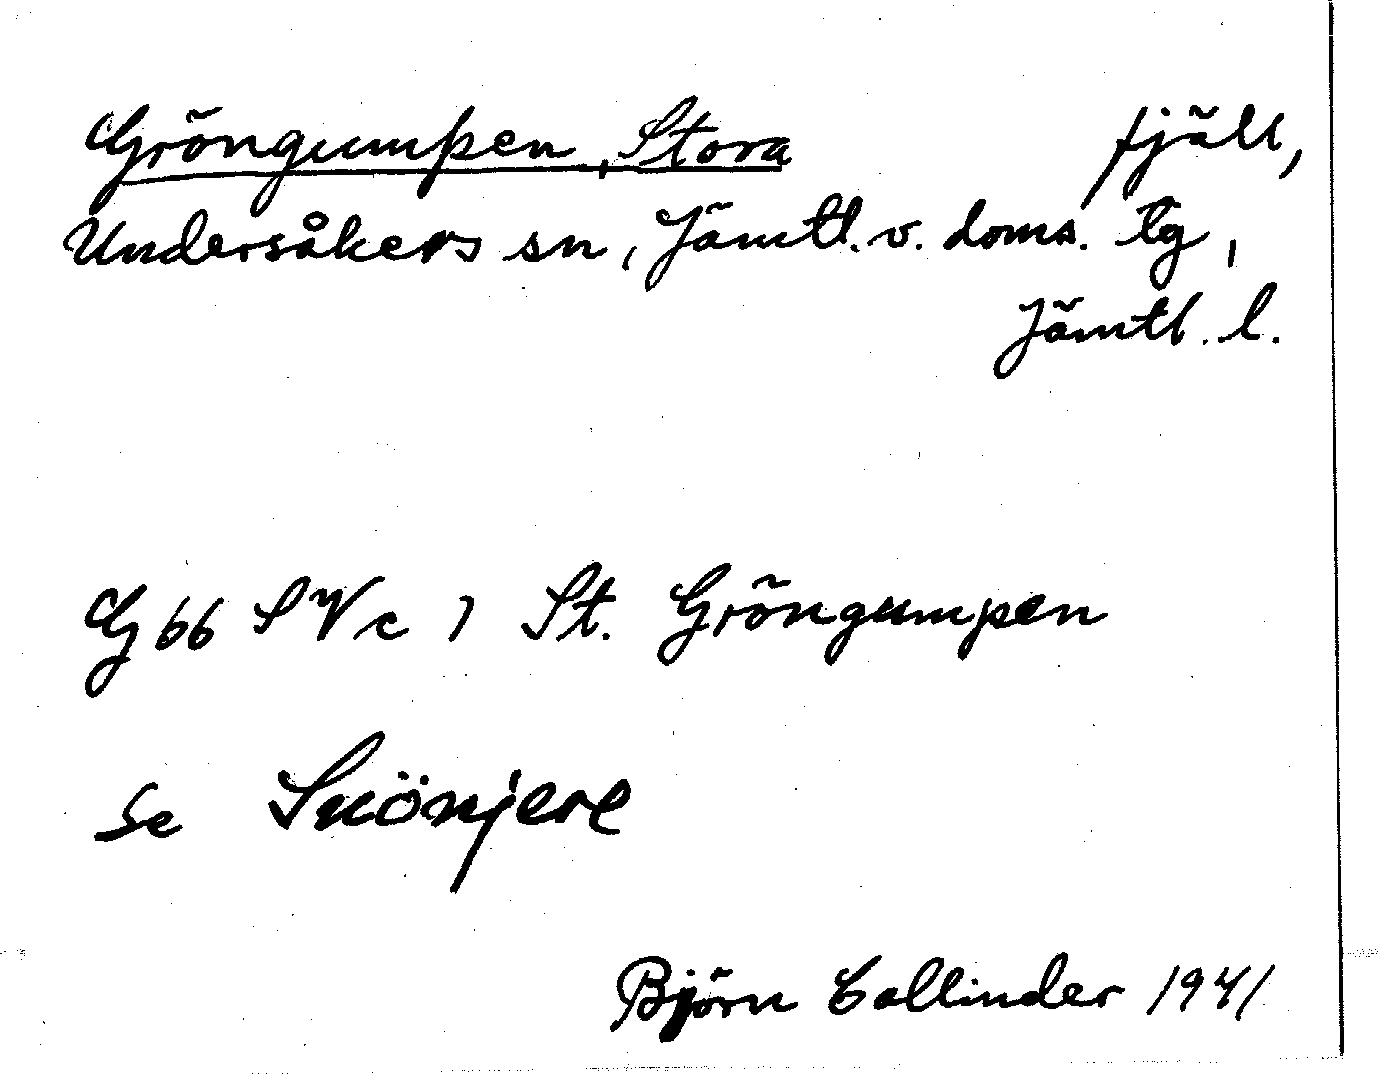 Gröngumpen, Stora fjäll,
Undersåkers sn, Jämtl. v. doms. tg,
Jämtl. l.
G 66 SVc ) St. Gröngumpen
Se Snönjere
Björn Collinder 1941